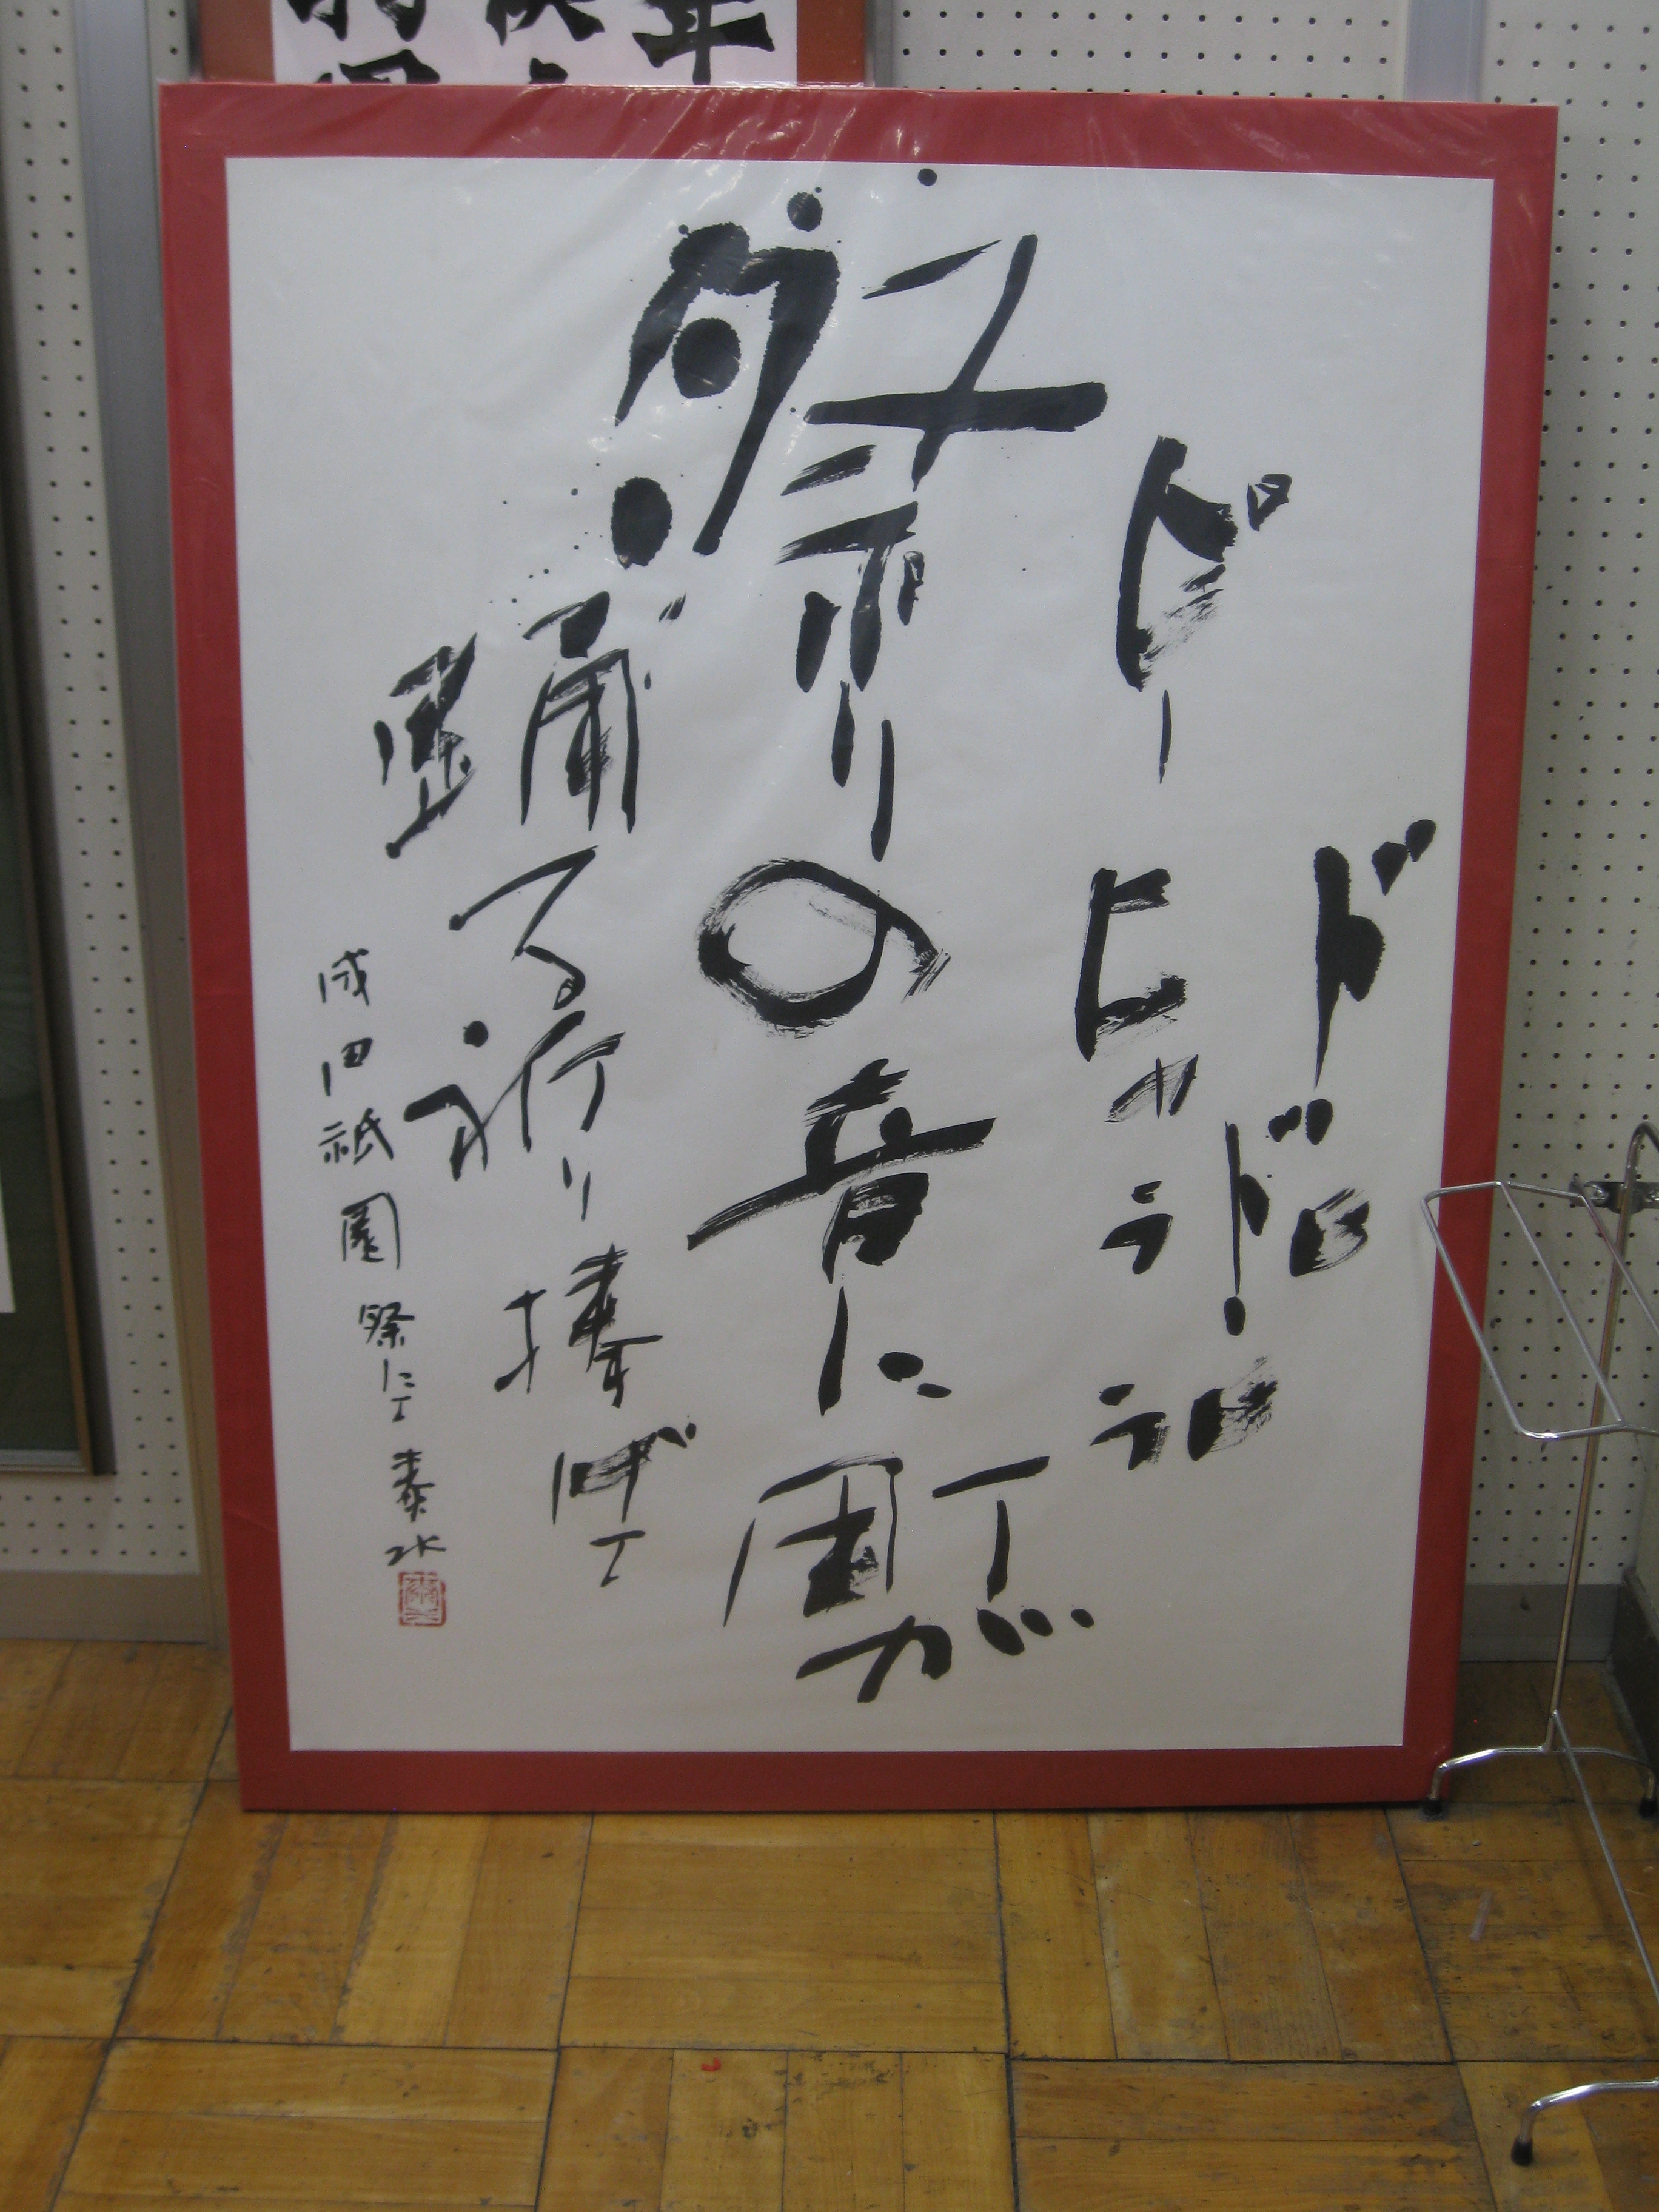 ドロ
ドロ
ピーヒャララ
祭りの音に町が
踊る祈り捧げて
成田祇園祭にて 泰水